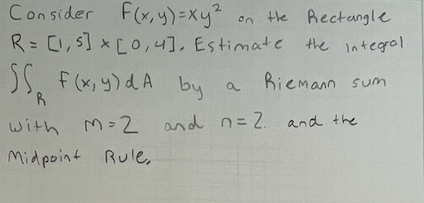 Consider F(x,y)=xy² on the Rectangle
R = [1,5] × [0,4]. Estimate the Integral
∬_R F(x,y)dA by a Riemann sum
with m=2 and n=2. and the
Midpoint Rule.